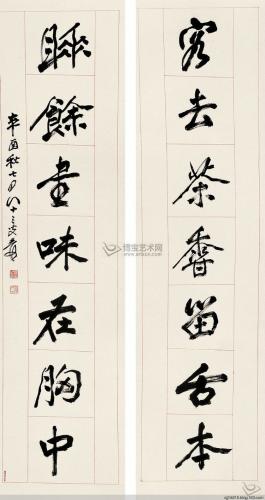 客去茶香留舌本
睡餘書味在胸中
辛酉秋七月八十三叟爰
博宝艺术网